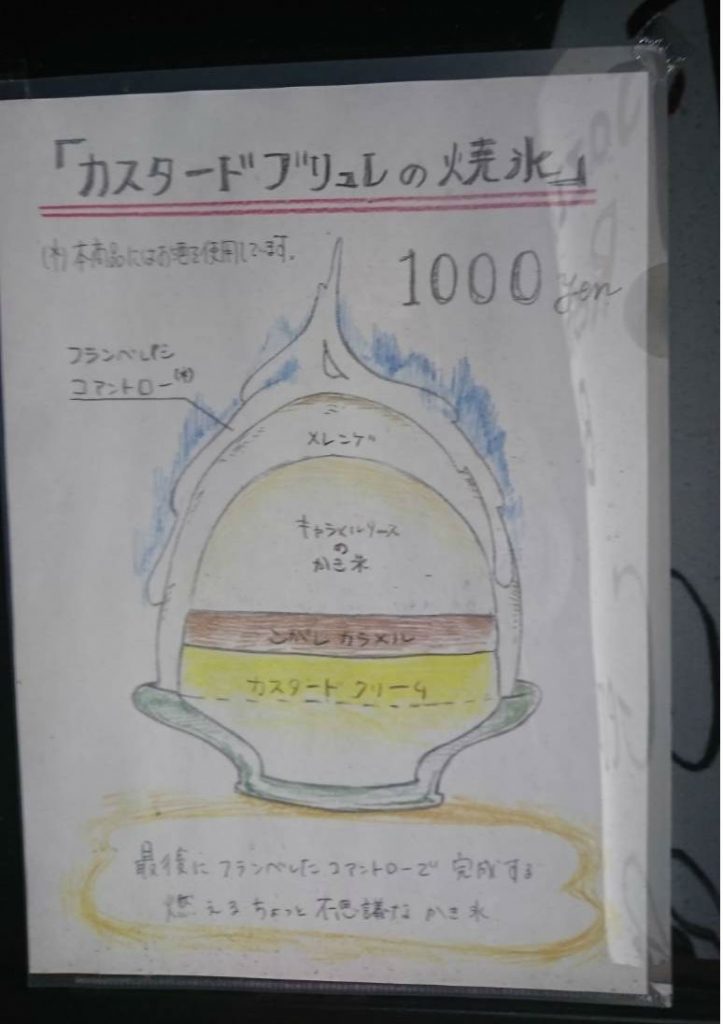 「カスタードブリュレの焼氷」
(*)本商品にはお酒を使用しています。
1000 yen
フランベした
コアントロー(*)
メレンゲ
キャラメルソース
の
かき氷
こがし カラメル
カスタード クリーム
最後にフランベしたコアントローで完成する
燃えるちょっと不思議なかき氷